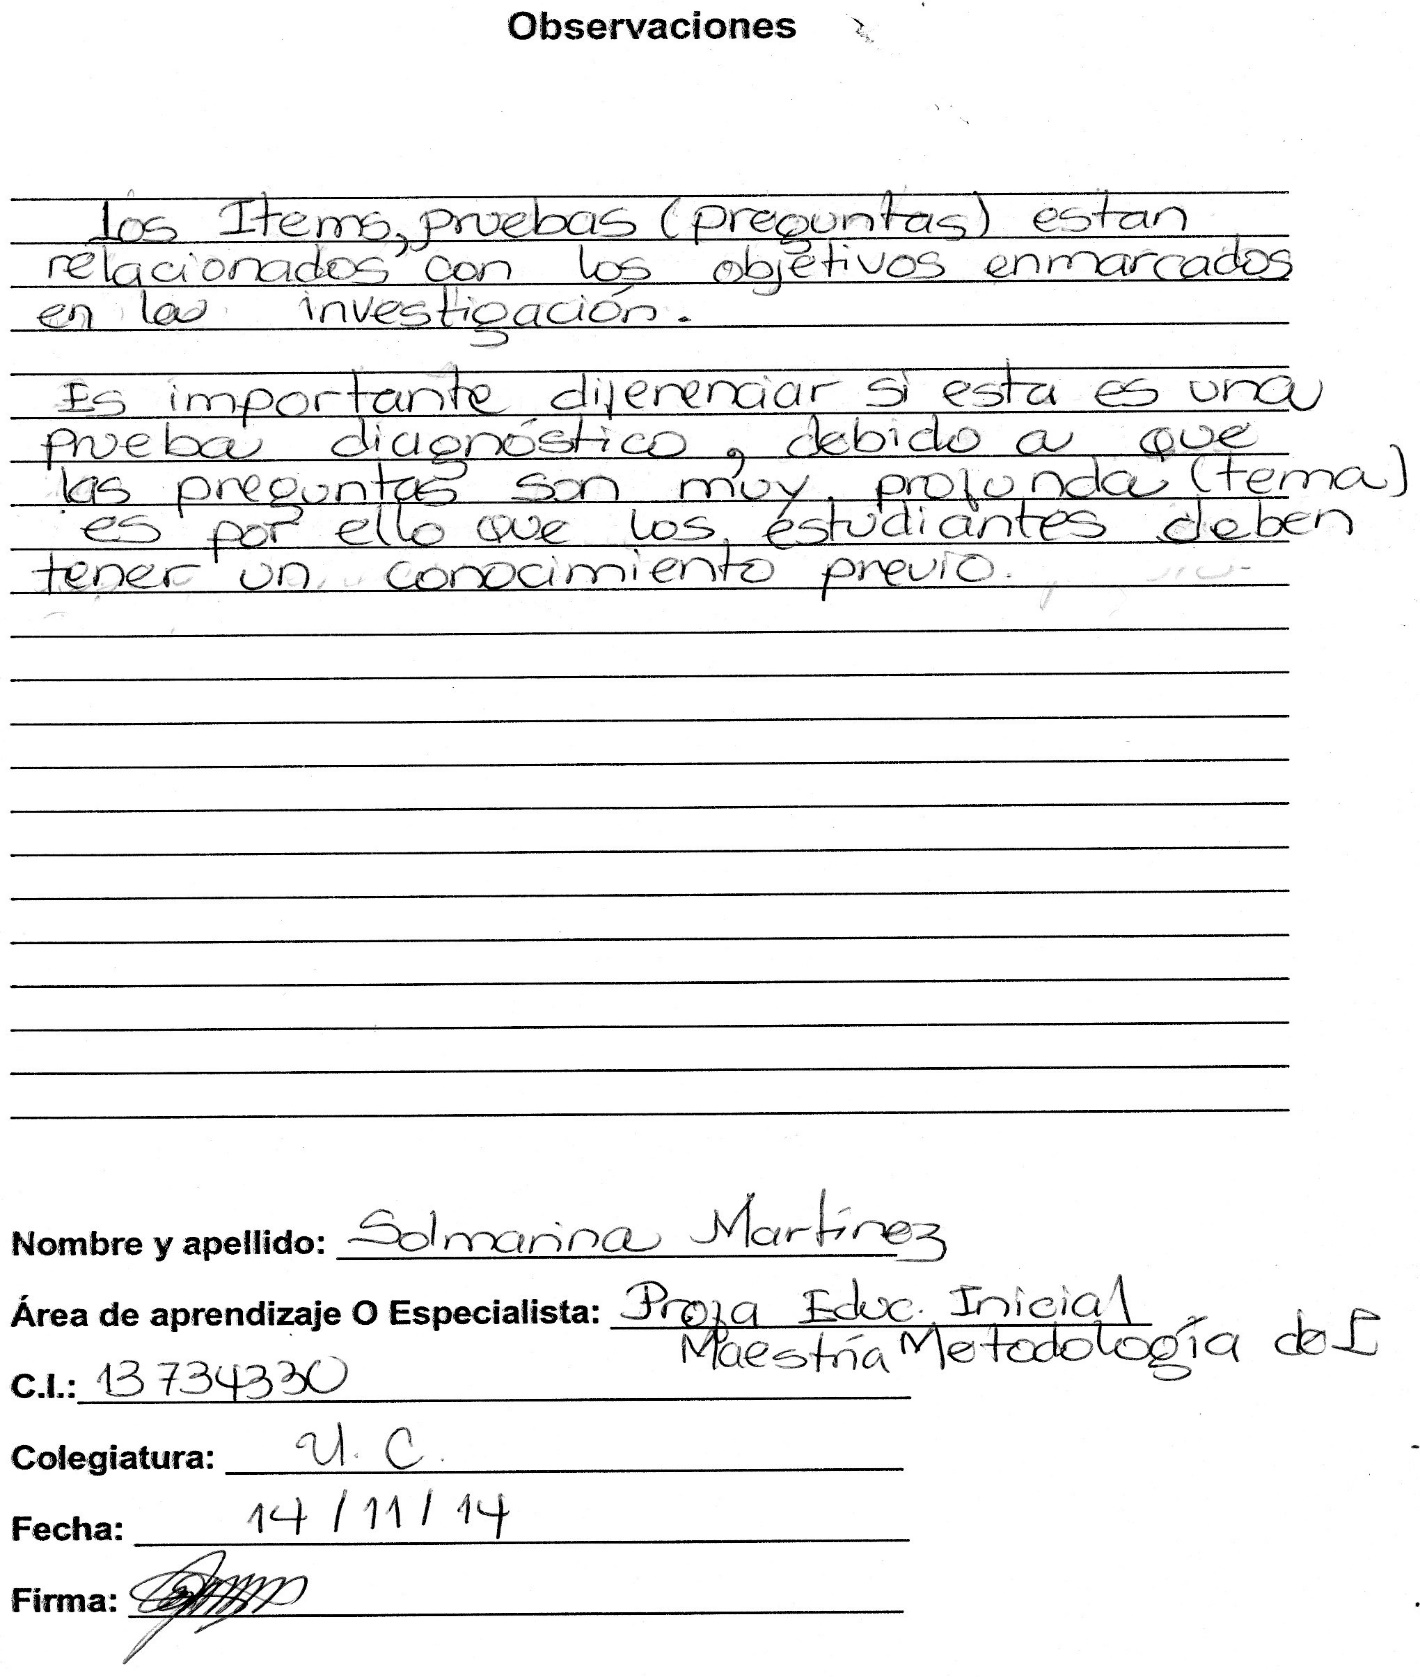 Observaciones
Los Items, pruebas (preguntas) estan
relacionados con los objetivos enmarcados
en la investigación.
Es importante diferenciar si esta es una
prueba diagnóstico, debido a que
las preguntas son muy profunda (tema)
es por ello que los estudiantes deben
tener un conocimiento previo.
Nombre y apellido: Solmarina Martínez
Área de aprendizaje O Especialista: Profa Educ. Inicial
Maestría Metodología de I
C.I.: 13734330
Colegiatura: U. C.
Fecha: 14/11/14
Firma: